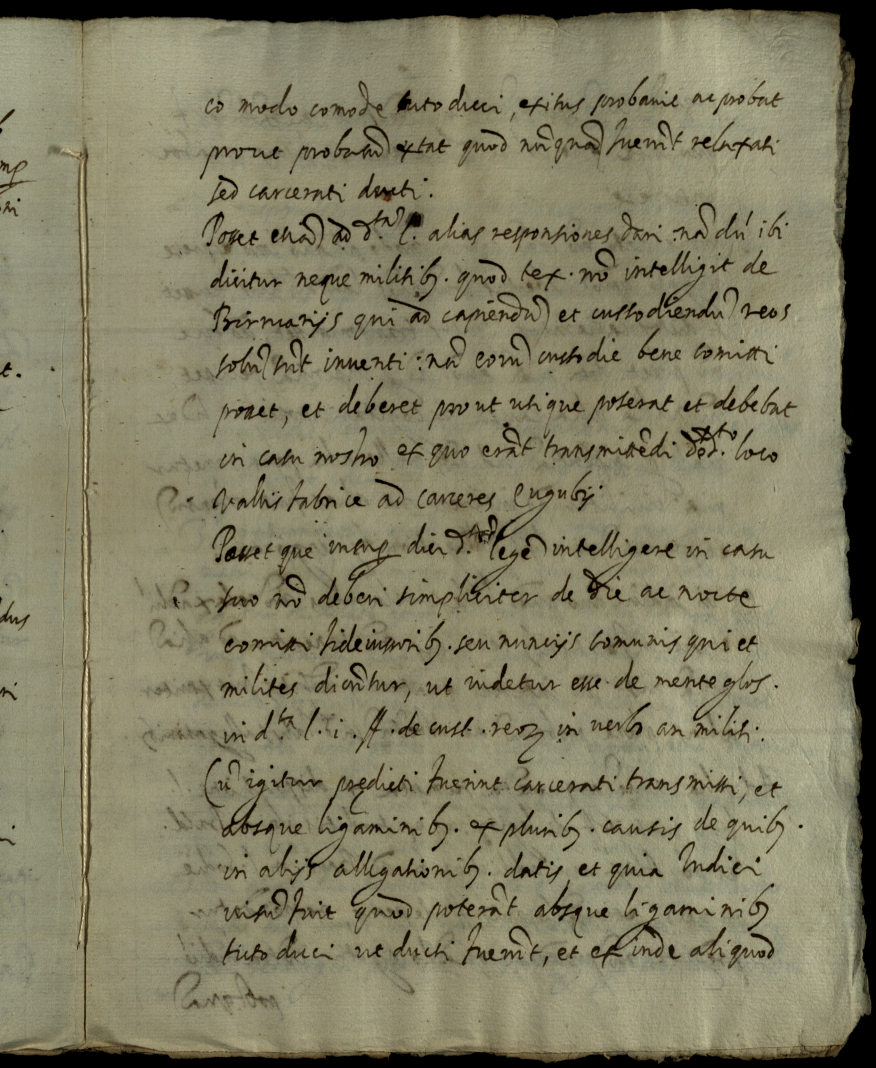 co modo comode tuto duci, exitus probavit ac probat
prout probatũ extat quod nũquã fuerũt relaxati
sed carcerati ducti.
Posset etiã ad d.tã l. alias responsiones dari: nã dũ ibi
dicitur neque militib. quod tex. nõ intelligit de
Birruarijs qui ad capiendũ et custodiendũ reos
solũ sũt inventi: nã eorũ custodie bene comitti
posset, et deberet prout utique poterat et debebat
in casu nostro ex quo erãt transmittẽdi de d.to loco
Vallis fabrice ad carceres Eugubij.
Posset que insup dici d.tã legẽ intelligere in casu
suo nõ deberi simpliciter de die ac nocte
comitti fideiussorib. seu nuncijs comunis qui et
milites dicũtur, ut videtur esse de mente glos.
in d.ta l. i. ff. de cust. reoꝝ in verbo an militi.
Cũ igitur prędicti fuerint carcerati transmissi, et
absque ligaminib. ex plurib. causis de quib.
in alijs allegationib. datis, et quia Iudici
visũ fuit quod poterãt absque ligaminib
tuto duci ut ducti fuerũt, et ex inde aliquod